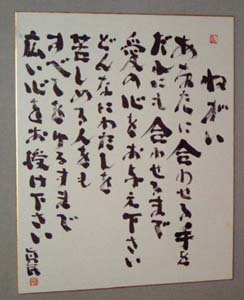 ねがい
あなたに合わせる手を
だれにも合わせるまで
愛の心をお与え下さい
どんなにわたしを
苦しめる人をも
すべてをゆるすまで
広い心をお授け下さい
真民